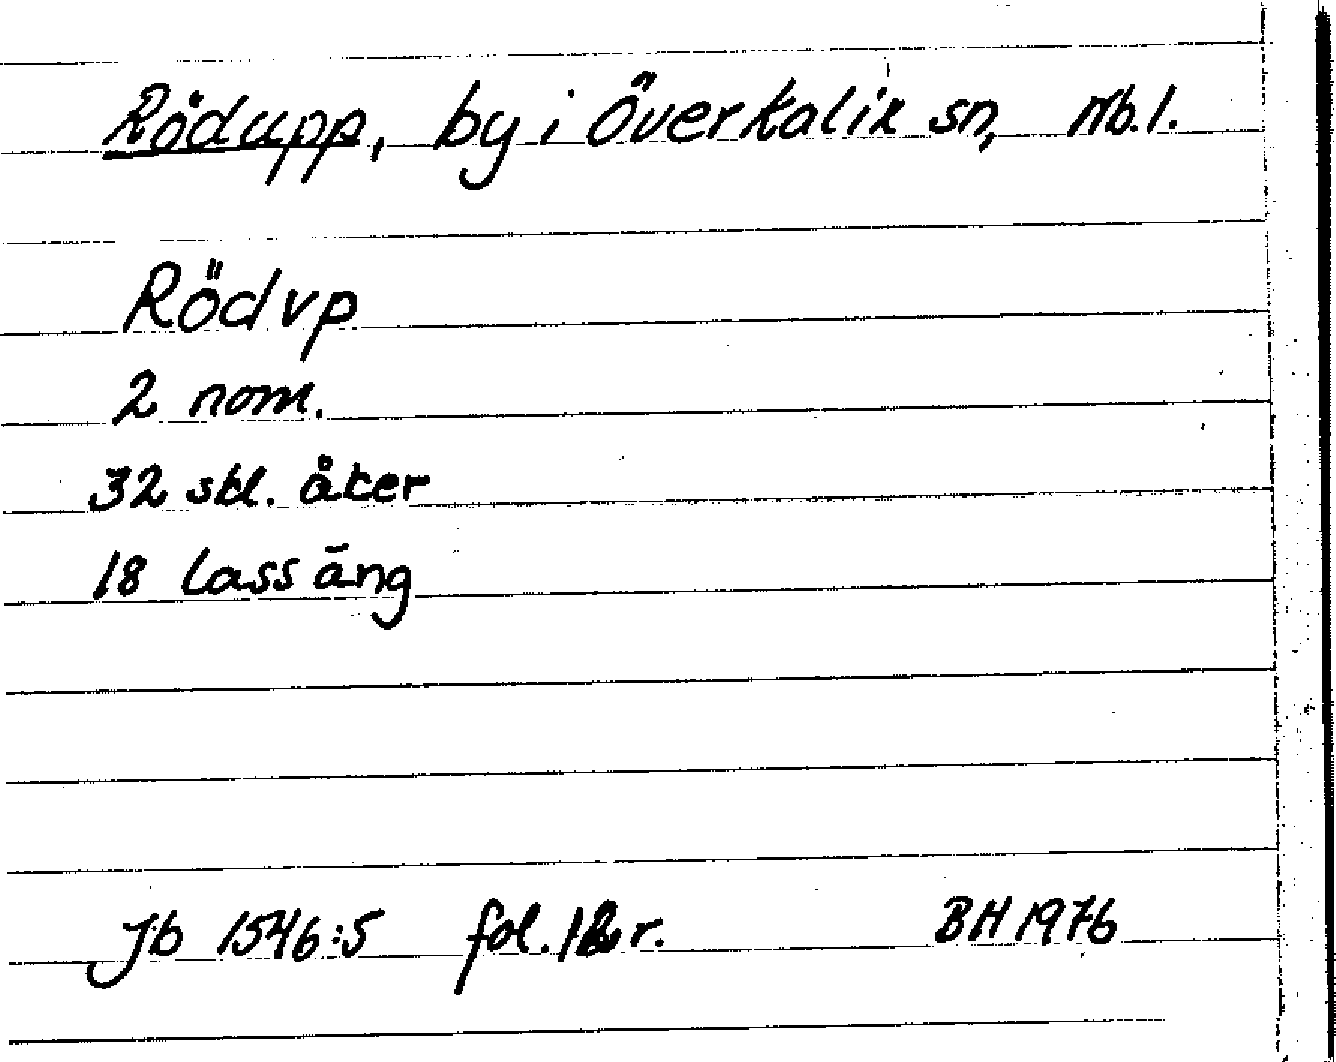 Rödupp, by i Överkalix sn, Nb.l.
Rödvp
2 nom.
32 skl. åker
18 lass äng
Jb 1546:5 fol. r. BH 1976